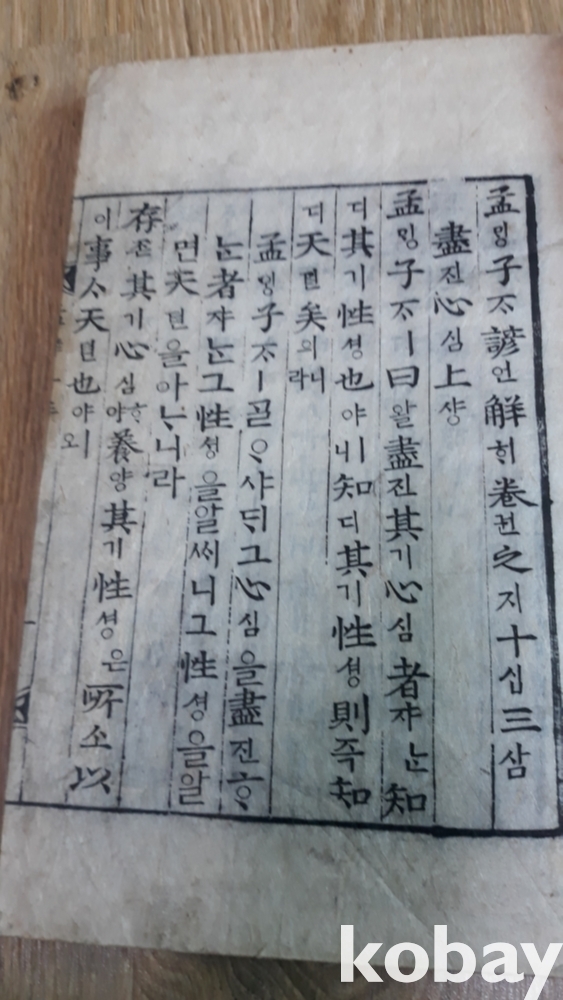 孟ᄆᆡᆼ子ᄌᆞ諺언解ᄒᆡ卷권之지十십三삼
盡진心심上샹
孟ᄆᆡᆼ子ᄌᆞㅣ曰왈盡진其기心심者쟈ᄂᆞᆫ知
디其기性셩也야ㅣ니知디其기性셩則즉知
디天텬矣의니라
孟ᄆᆡᆼ子ᄌᆞㅣᄀᆞᆯᄋᆞ샤ᄃᆡ그心심을盡진ᄒᆞ
ᄂᆞᆫ者쟈ᄂᆞᆫ그性셩을알ᄭᅵ니그性셩을알
면天텬을아ᄂᆞ니라
存존其기心심ᄒᆞ야養양其기性셩은所소以
이事ᄉᆞ天텬也야ㅣ오
kobay